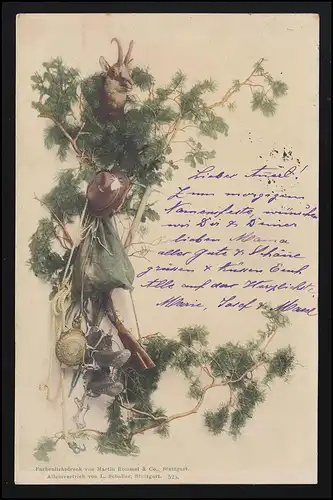 Lieber Axel!
Zum morgigen
Namensfeste wünschen
wir Dir & Deiner
lieben Mama
alles Gute & Schöne
grüssen & küssen Euch
Alle auf das Herzlichste
Marie, Josef &
Farbenlichtdruck von Martin Rommel & Co., Stuttgart.
Alleinvertrieb von L. Schaller, Stuttgart. 525.